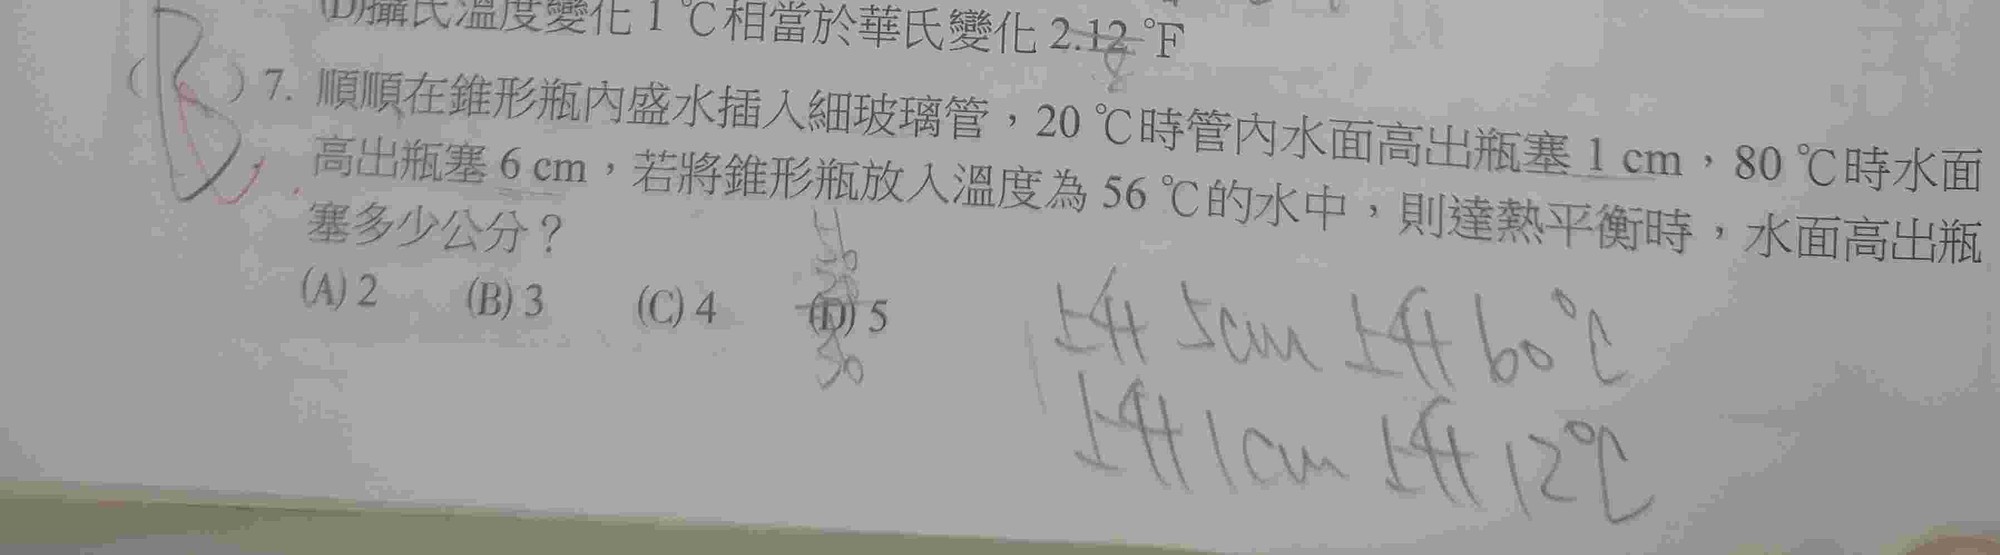 (D)攝氏溫度變化 1 ℃相當於華氏變化 2.12 ℉
8
( B ) 7. 順順在錐形瓶內盛水插入細玻璃管，20 ℃時管內水面高出瓶塞 1 cm，80 ℃時水面
高出瓶塞 6 cm，若將錐形瓶放入溫度為 56 ℃的水中，則達熱平衡時，水面高出瓶
塞多少公分？
(A) 2 (B) 3 (C) 4 (D) 5
56
20
上升 5cm 上升 60℃
上升 1cm 上升 12℃